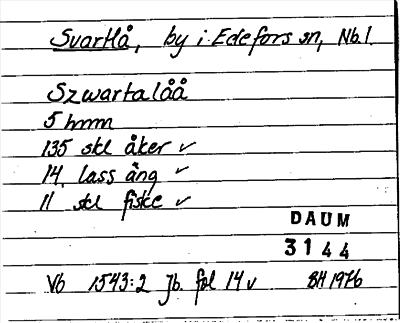 Svartlå, by i Edefors sn, Nb.l.
Szwartalåå
5 hmn
135 skl åker ✓
14 lass äng ✓
11 skl fiske ✓
DAUM
3144
Vb 1543:2 Jb. fol 14v BH 1976